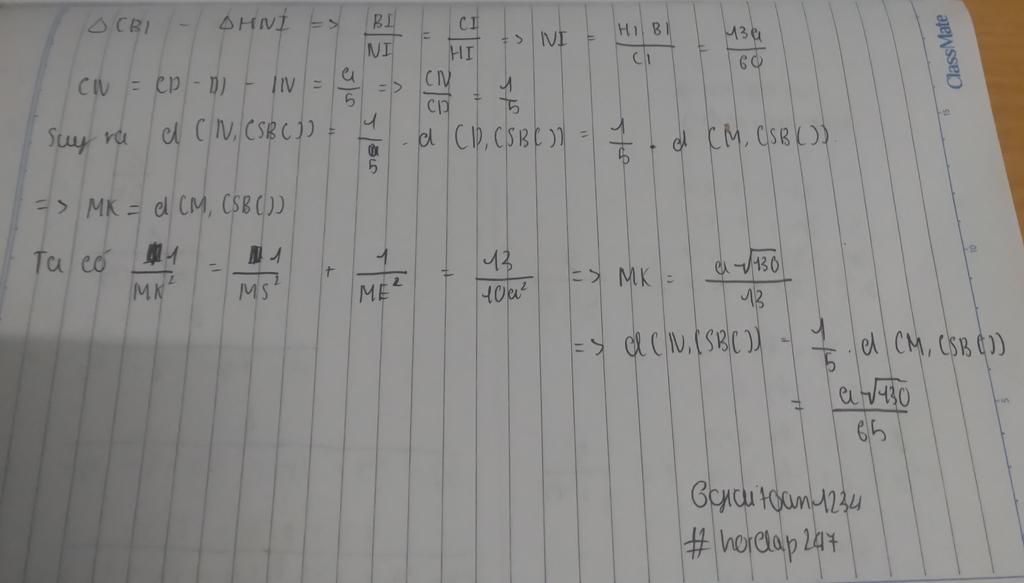 △CBI ~ △HNI => BI/NI = CI/HI => NI = HI.BI/CI = 13a/60
CN = CD - DI - IN = a/5 => CN/CD = 1/5
Suy ra d(N,(SBC)) = 1/5 . d(D,(SBC)) = 1/5 . d(M,(SBC)).
=> MK = d(M,(SBC))
Ta có 1/MK² = 1/MS² + 1/ME² = 13/10a² => MK = a√130/13
=> d(N,(SBC)) = 1/5 . d(M,(SBC))
= a√130/65
@giaitoan1234
# hoidap247
ClassMate
15
10
5